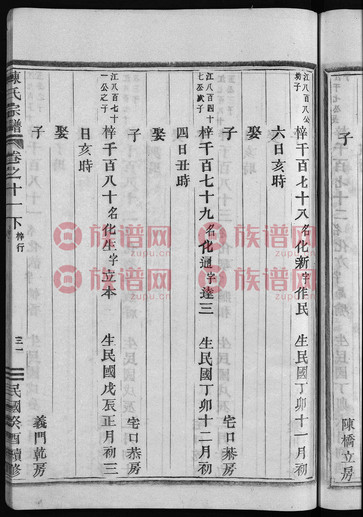 子
陳橋立房
江八百八公幼子
梓千百七十八名化新字作民 生民國丁卯十一月初
六日亥時
娶
子 宅口恭房
江八百四十七公次子
梓千百七十九名化通字達三 生民國丁卯十二月初
四日丑時
娶
子 宅口恭房
江八百七十一公之子
梓千百八十名化生字立本 生民國戊辰正月初三
日亥時
娶
子 義門乾房
陳氏宗譜 卷之十一下 梓行 三一 民國癸酉續修
族谱网
www.zupu.cn